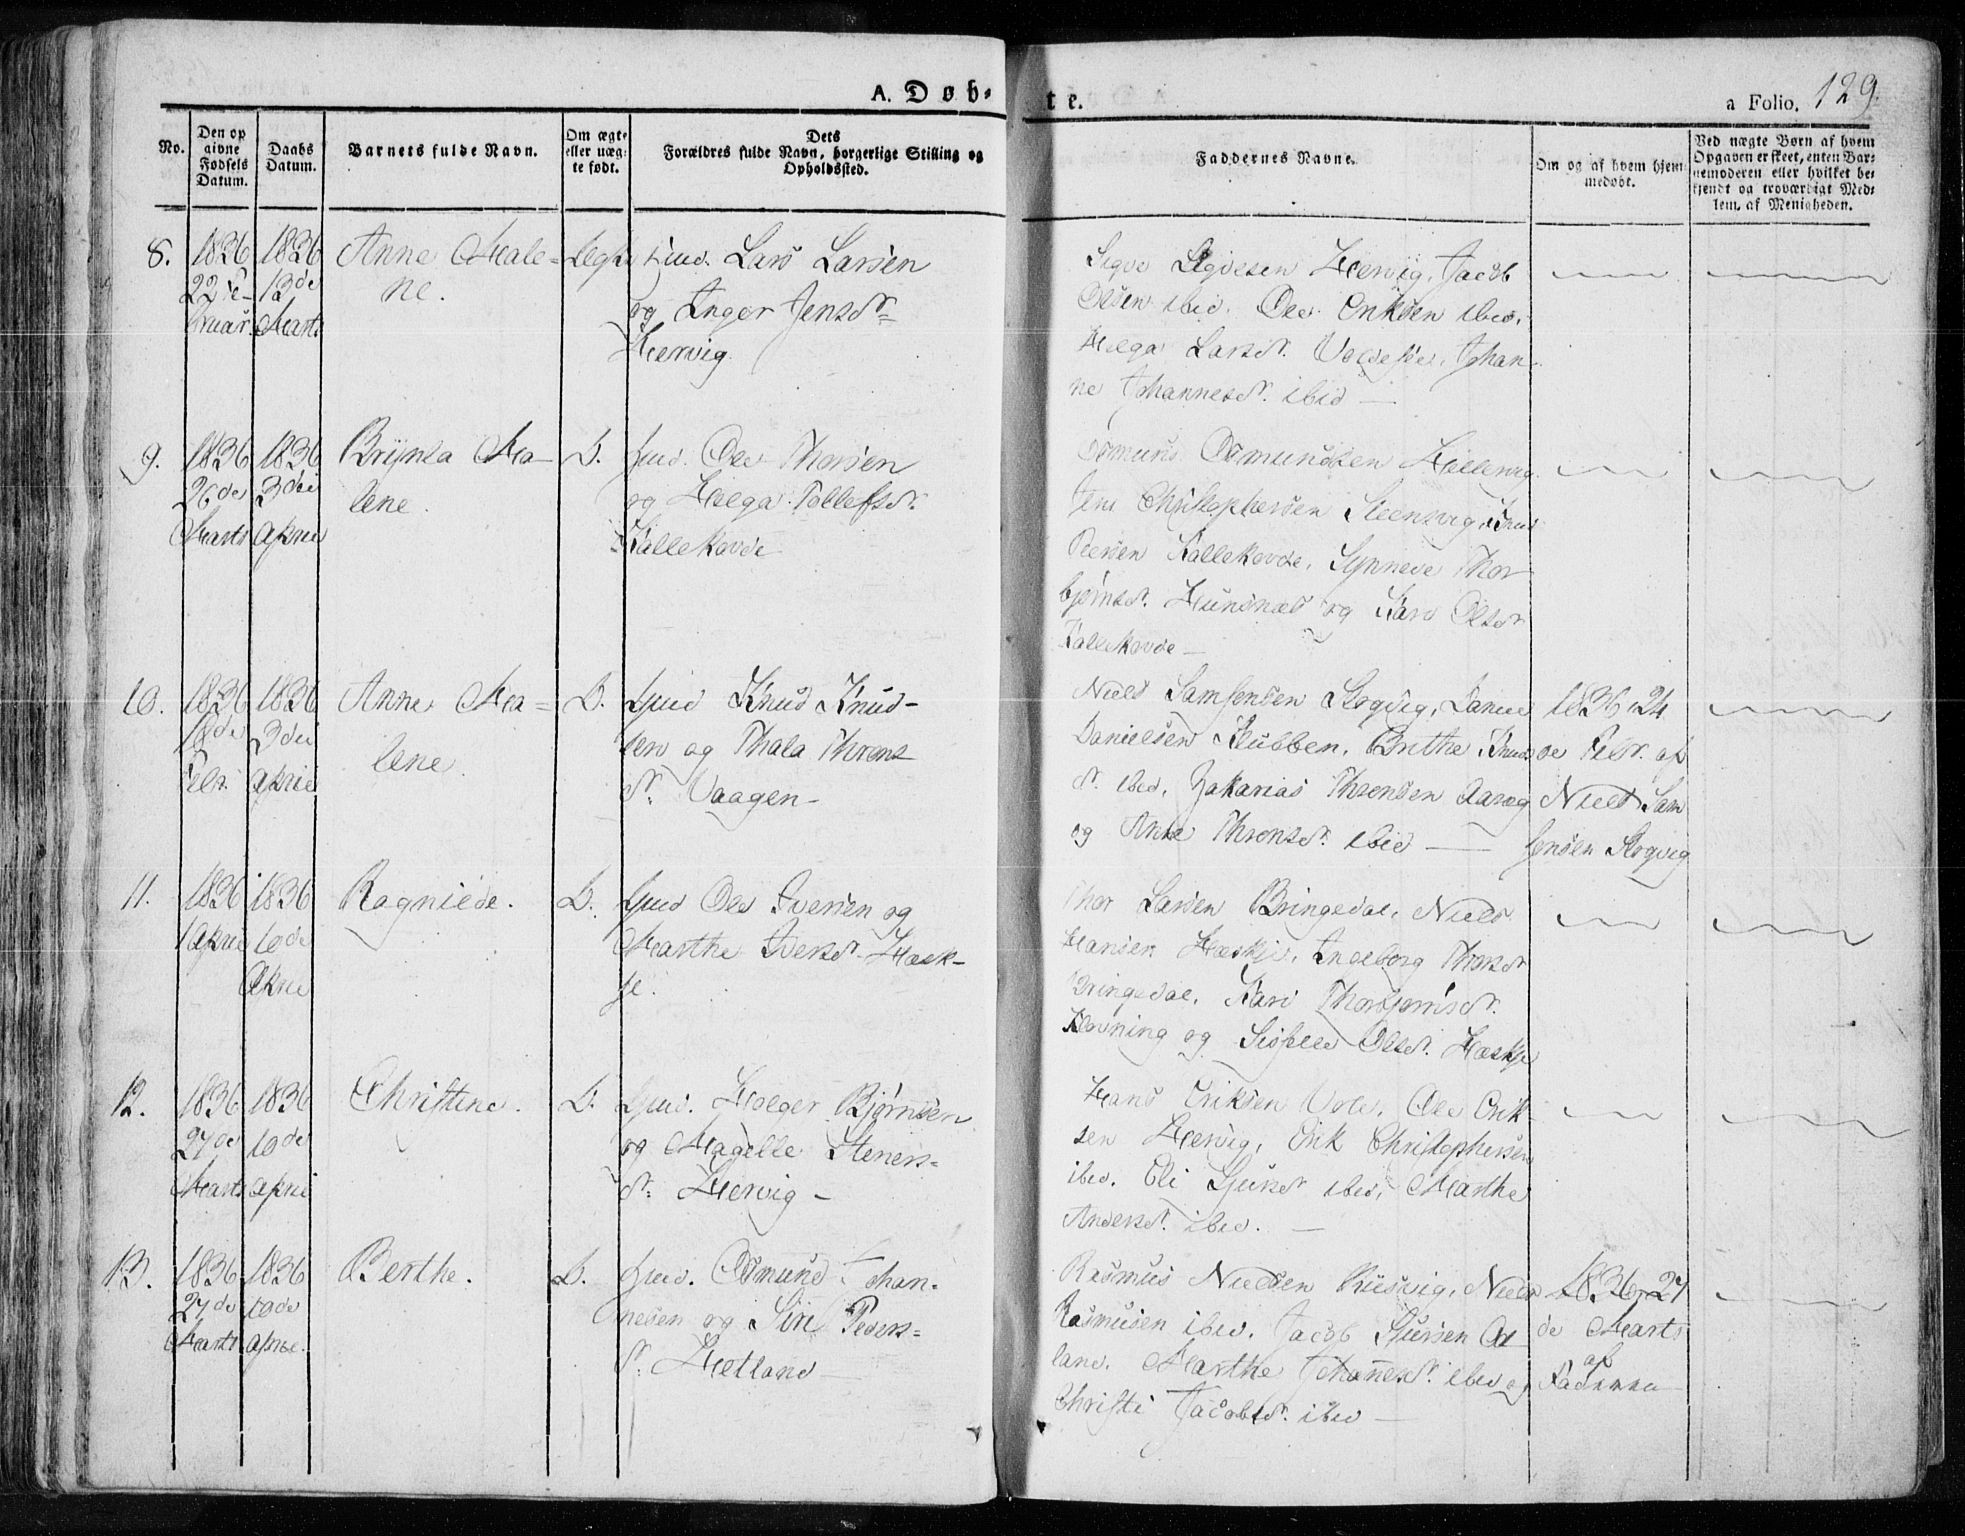 A. Døb-
te.
a Folio. 129.
No.
Den op
givne
Fødsels
Datum.
Daabs
Datum.
Barnets fulde Navn.
Om ægte
eller uæg-
te født.
Dets
Forældres fulde Navn, borgerlige Stilling og
Opholdssted.
Faddernes Navne.
Om og af hvem hjem-
medøbt.
Ved uægte Børn af hvem
Opgaven er skeet, enten Bar-
nemoderen eller hvilket be-
kjendt og troværdigt Med-
lem af Menigheden.
8.
1836
22 Fe-
bruar.
1836
13de
Marts
Anne Male-
ne.
Ægte
Lars Larsen
og Inger Jensdr=
Hervig.
Hervig, Jacob
Olsen ibid. Ole Eriksen ibid.
Helga Larsdr. Johan-
ne Johannesdr. ibid —
9.
1836
26de
Marts
1836
3die
April
Brynla Ma-
lene.
D.
Ole Thorsen
og Helga Tollefsdr.
Kallekodde
Osmund Osmundsen
Jens Christophersen Steensvig, Knud
Peersen Kallekodde, Synneve Thor-
bjørnsdr. Hunsnæs og Kari Olsdr
Kallekodde —
10.
1836
18de
Febr.
1836
3die
April
Anne Ma=
lene.
D.
Gmd Knud Knud-
sen og Thala Throns-
dr. Vaagen —
Niels Samsonsen Daniel
Danielsen Klubben, Brithe Knuds
dr. ibid, Zakarias Thronsen
og Anne Thronsdr. ibid —
1836, 24
de Febr. af
Niels Sam
sonsen
11.
1836
1 April
1836
10de
April
Ragnilde.
D.
Gmd Ole Iversen og
Marthe Iversdr. Hæsk-
je.
Thor Larsen Bringedal, Niels
Hansen Hæskje, Ingeborg Thorsdr
Bringedal, Kari Thorbjørnsdr.
og Sissele Olsdr. Hæskje
12.
1836
27de
Marts
1836
10de
April
Christine.
D.
Gmd. Holger Bjørnsen
og Magelle Steners-
dr. Hervig —
Hans Eriksen Ole Erik-
sen Hervig, Erik Christophersen
ibid. Eli ibid, Marthe
Andersdr. ibid. —
13.
1836
27de
Marts
1836
10de
April.
Berthe.
D.
Gmd. Osmund Johan-
nesen og Siri Peders-
dr. Hetland —
Rasmus Nielsen Niels
Rasmusen ibid. Jacob
land. Marthe Johannesdr. ibid og
Christi Jacobsdr. ibid —
1836, 27
de Marts
af